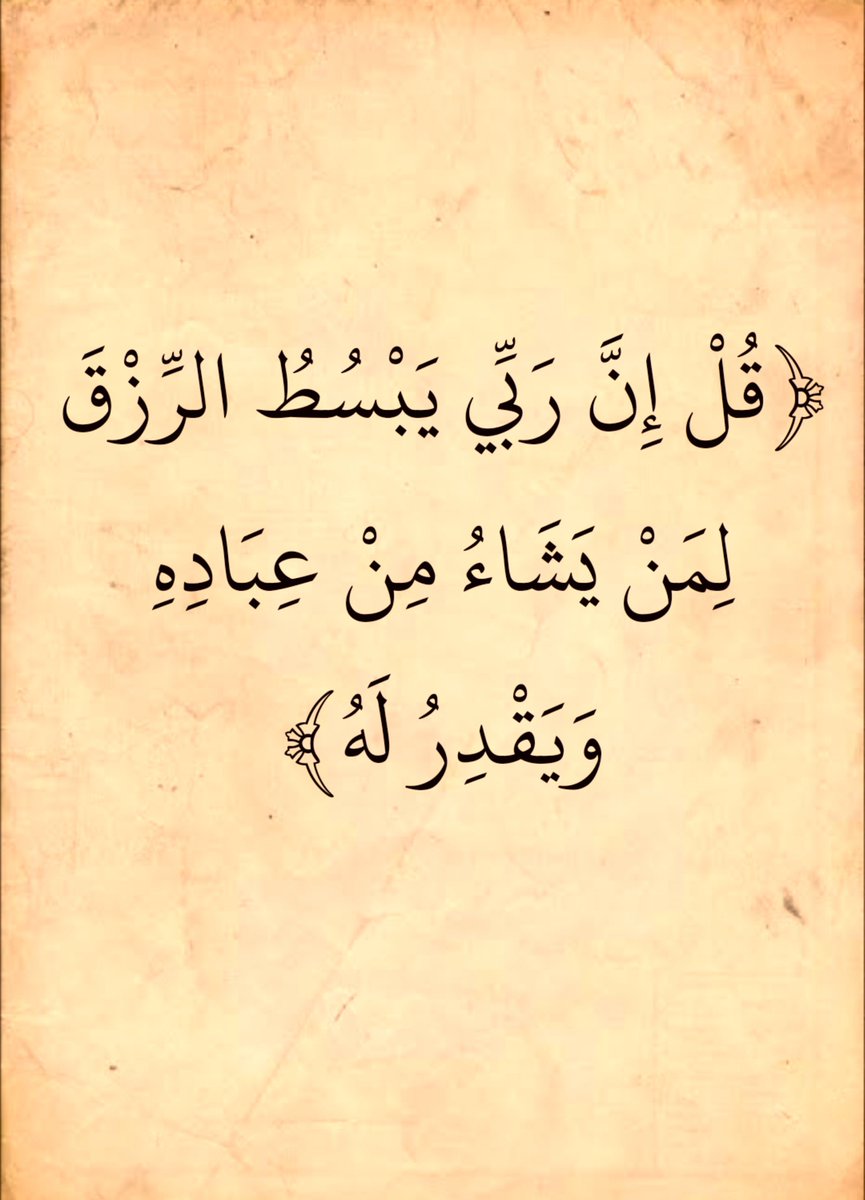 ﴿قُلْ إِنَّ رَبِّي يَبْسُطُ الرِّزْقَ
لِمَنْ يَشَاءُ مِنْ عِبَادِهِ
وَيَقْدِرُ لَهُ﴾